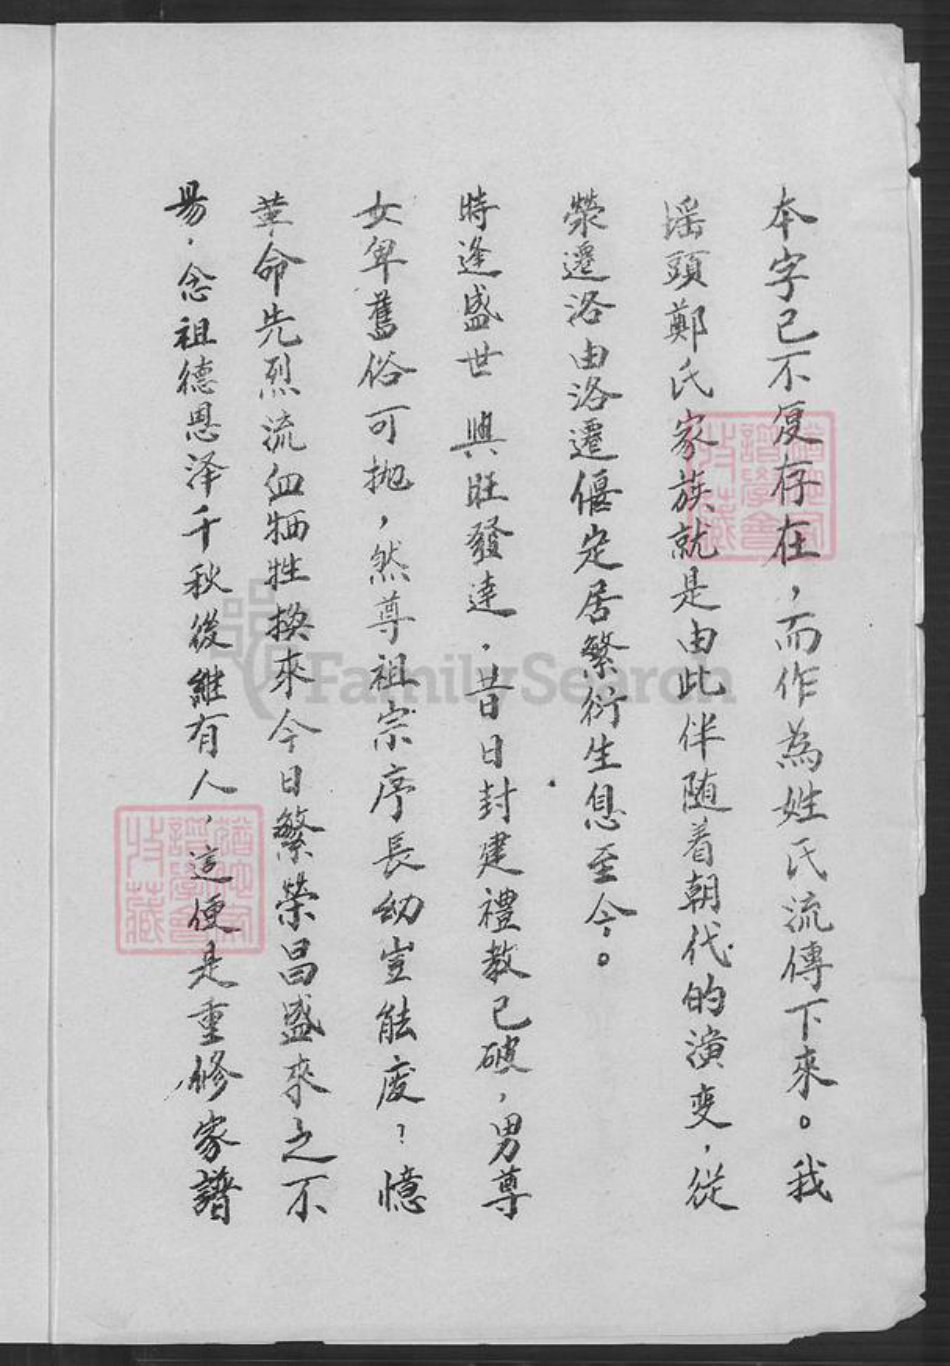 本字已不复存在，而作為姓氏流傳下來。我
瑶頭鄭氏家族就是由此伴随着朝代的演变，從
滎遷洛由洛遷偃定居繁衍生息至今。
時逢盛世 興旺發達，昔日封建禮教已破，男尊
女卑舊俗可抛，然尊祖宗序長幼豈能废？憶
革命先烈流血牺牲换來今日繁荣昌盛來之不
易，念祖德恩泽千秋後継有人，這便是重修家譜
FamilySearch